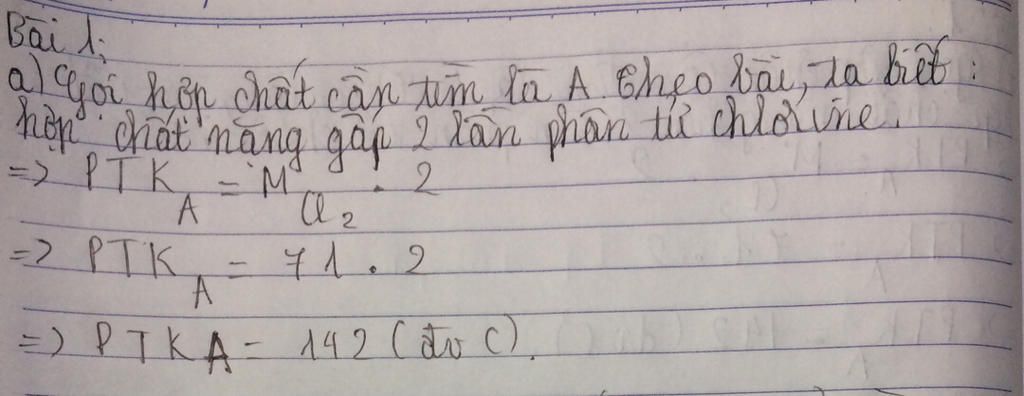 Bài 1:
a) Gọi hợp chất cần tìm là A. Theo bài, ta biết :
hợp chất nặng gấp 2 lần phân tử chlorine.
=> PTK_A = M_Cl₂ . 2
=> PTK_A = 71 . 2
=> PTK_A = 142 (đv C).